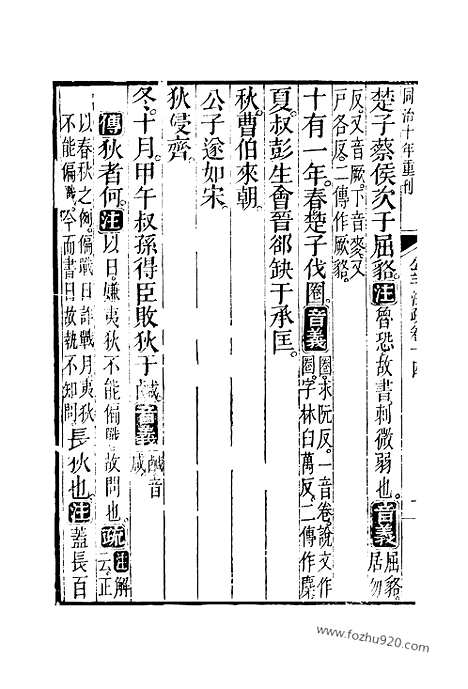 同治十年重刊
楚子蔡侯次于屈貉。注魯恐故書刺微弱也。音義屈貉居勿
反又音厥下音麥又戶各反二傳作厥貉
十有一年春楚子伐圈。音義圈求阮反一音卷說文作圈字林臼萬反二傳作麇
夏叔彭生會晉郤缺于承匡。
秋曹伯來朝。
公子遂如宋。
狄侵齊。
冬十月甲午叔孫得臣敗狄于鹹。音義鹹音咸
傳狄者何。注以日嫌夷狄不能偏戰故問也。疏注解云正
以春秋之例偏戰日詐戰月夷狄不能偏戰今而書日故執不知問長狄也。注蓋長百
www.fozhu920.com